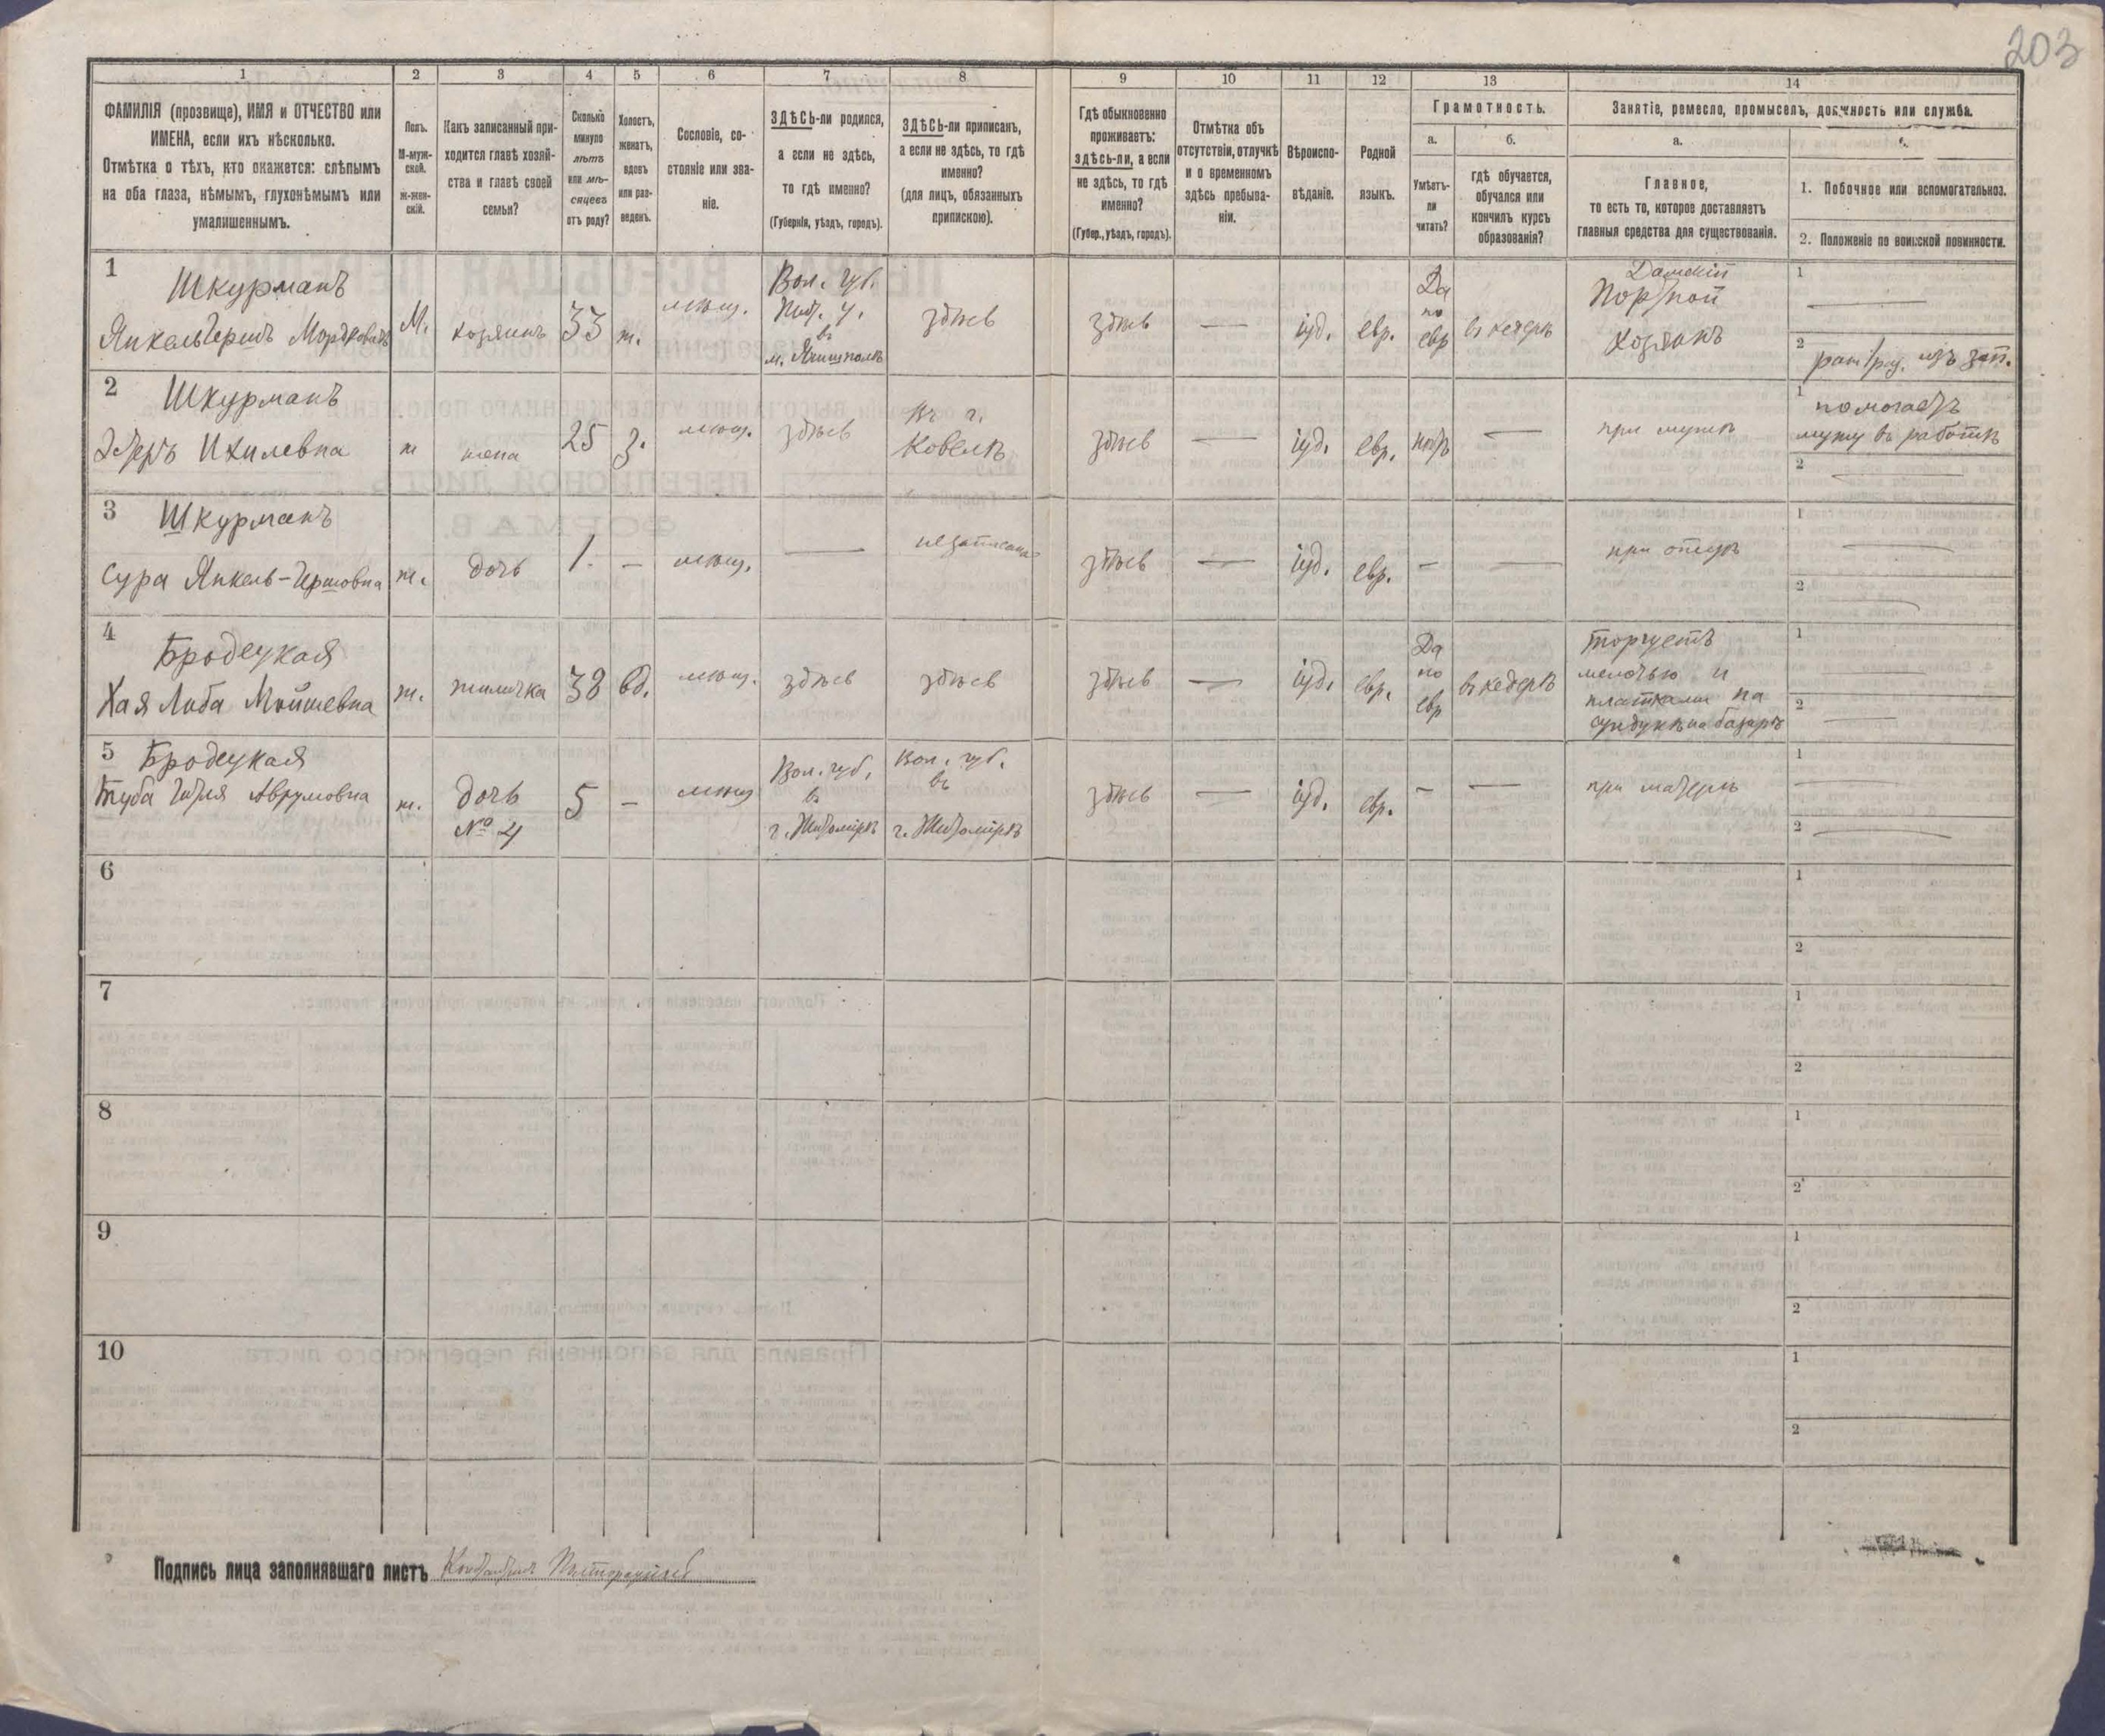 203
1
2
3
4
5
6
7
8
9
10
11
12
13
14
ФАМИЛІЯ (прозвище), ИМЯ и ОТЧЕСТВО или
ИМЕНА, если ихъ нѣсколько.
Отмѣтка о тѣхъ, кто окажется: слѣпымъ
на оба глаза, нѣмымъ, глухонѣмымъ или
умалишеннымъ.
Полъ.
М-муж-
ской.
Ж-жен-
скій.
Какъ записанный при-
ходится главѣ хозяй-
ства и главѣ своей
семьи?
Сколько
минуло
лѣтъ
или мѣ-
сяцевъ
отъ роду?
Холостъ,
женатъ,
вдовъ
или раз-
веденъ.
Сословіе, со-
стояніе или зва-
ніе.
ЗДѢСЬ-ли родился,
а если не здѣсь,
то гдѣ именно?
(Губернія, уѣздъ, городъ).
ЗДѢСЬ-ли приписанъ,
а если не здѣсь, то гдѣ
именно?
(для лицъ, обязанныхъ
припискою).
Гдѣ обыкновенно
проживаетъ:
здѣсь-ли, а если
не здѣсь, то гдѣ
именно?
(Губер., уѣздъ, городъ).
Отмѣтка объ
отсутствіи, отлучкѣ
и о временномъ
здѣсь пребыва-
ніи.
Вѣроиспо-
вѣданіе.
Родной
языкъ.
Грамотность.
а.
Умѣетъ-
ли
читать?
б.
гдѣ обучается,
обучался или
кончилъ курсъ
образованія?
Занятіе, ремесло, промыселъ, должность или служба.
а.
Главное,
то есть то, которое доставляетъ
главныя средства для существованія.
1. Побочное или вспомогательное.
2. Положеніе по воинской повинности.
1
Шкурманъ
Янкель Гершъ Мордковичъ
М.
хозяинъ
33
ж.
мѣщ.
Вол. Губ.
въ
здѣсь
здѣсь
—
іуд.
евр.
Да
по
евр
въ хедерѣ
Дамскій
Портной
Хозяинъ
1
—
2
2
Шкурманъ
Эстеръ Ихилевна
ж
жена
25
з.
мѣщ.
здѣсь
Въ г.
Ковелѣ
здѣсь
—
іуд.
евр.
нѣтъ
—
при мужѣ
1
помогаетъ
мужу въ работѣ
2
—
3
Шкурманъ
Сура Янкель-Гершовна
ж.
дочь
1.
—
мѣщ.
—
не записана
здѣсь
—
іуд.
евр.
—
—
при отцѣ
1
—
2
—
4
Бродецкая
Хая Либа Мойшевна
ж.
жиличка
38
вд.
мѣщ.
здѣсь
здѣсь
здѣсь
—
іуд.
евр.
Да
по
евр
въ хедерѣ
торгуетъ
мелочью и
платками на
сундукѣ на базарѣ
1
—
2
—
5
Бродецкая
Туба Гитля Аврумовна
ж.
дочь
№ 4
5
—
мѣщ
Вол. губ.
въ
г. Житомірѣ
Вол. губ.
въ
г. Житомірѣ
здѣсь
—
іуд.
евр.
—
—
при матери
1
—
2
—
6
1
2
7
1
2
8
1
2
9
1
2
10
1
2
Подпись лица заполнявшаго листъ